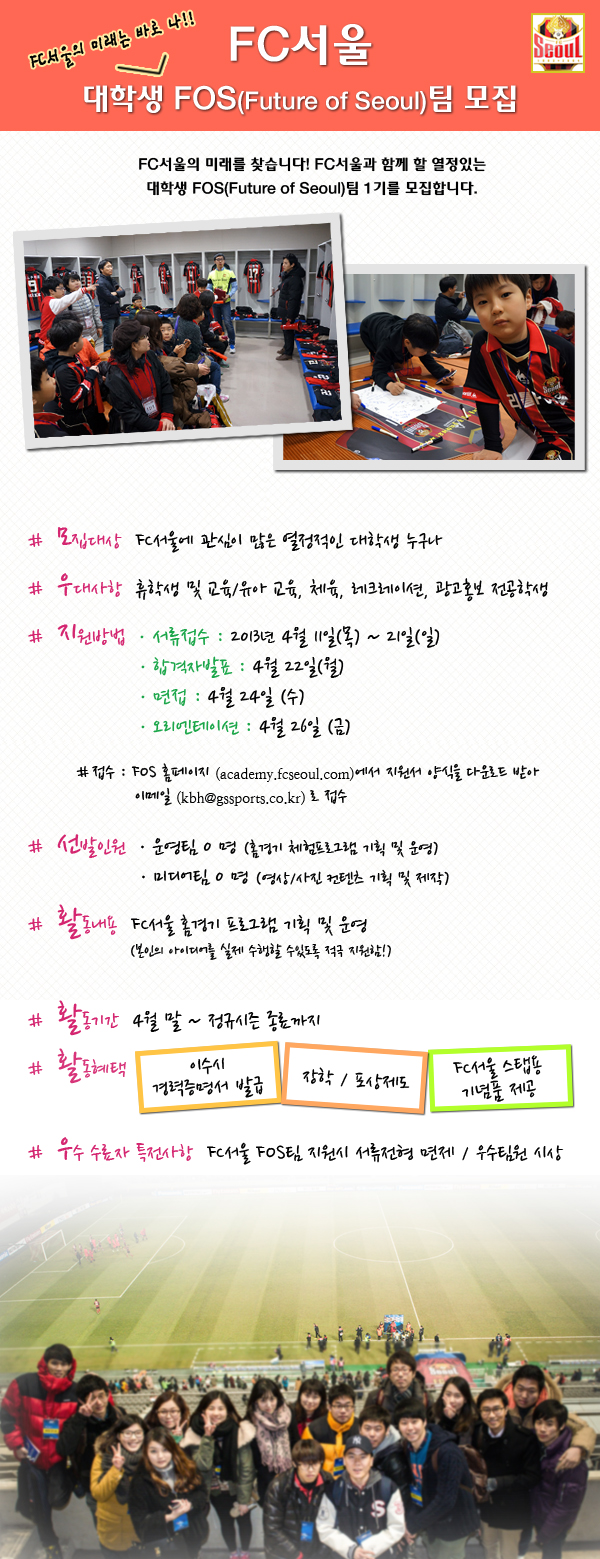 FC서울의 미래는 바로 나!!
FC서울
SEOUL
대학생 FOS(Future of Seoul)팀 모집
FC서울의 미래를 찾습니다! FC서울과 함께 할 열정있는
대학생 FOS(Future of Seoul)팀 1기를 모집합니다.
# 모집대상 FC서울에 관심이 많은 열정적인 대학생 누구나
# 우대사항 휴학생 및 교육/유아 교육, 체육, 레크레이션, 광고홍보 전공학생
# 지원방법 · 서류접수 : 2013년 4월 11일(목) ~ 21일(일)
· 합격자발표 : 4월 22일(월)
· 면접 : 4월 24일 (수)
· 오리엔테이션 : 4월 26일 (금)
#접수 : FOS 홈페이지 (academy.fcseoul.com)에서 지원서 양식을 다운로드 받아
이메일 (kbh@gssports.co.kr) 로 접수
# 선발인원 · 운영팀 0 명 (홈경기 체험프로그램 기획 및 운영)
· 미디어팀 0 명 (영상/사진 컨텐츠 기획 및 제작)
# 활동내용 FC서울 홈경기 프로그램 기획 및 운영
(본인의 아이디어를 실제 수행할 수있도록 적극 지원함!)
# 활동기간 4월 말 ~ 정규시즌 종료까지
# 활동혜택
이수시
경력증명서 발급
장학 / 포상제도
FC서울 스탭용
기념품 제공
# 우수 수료자 특전사항 FC서울 FOS팀 지원시 서류전형 면제 / 우수팀원 시상